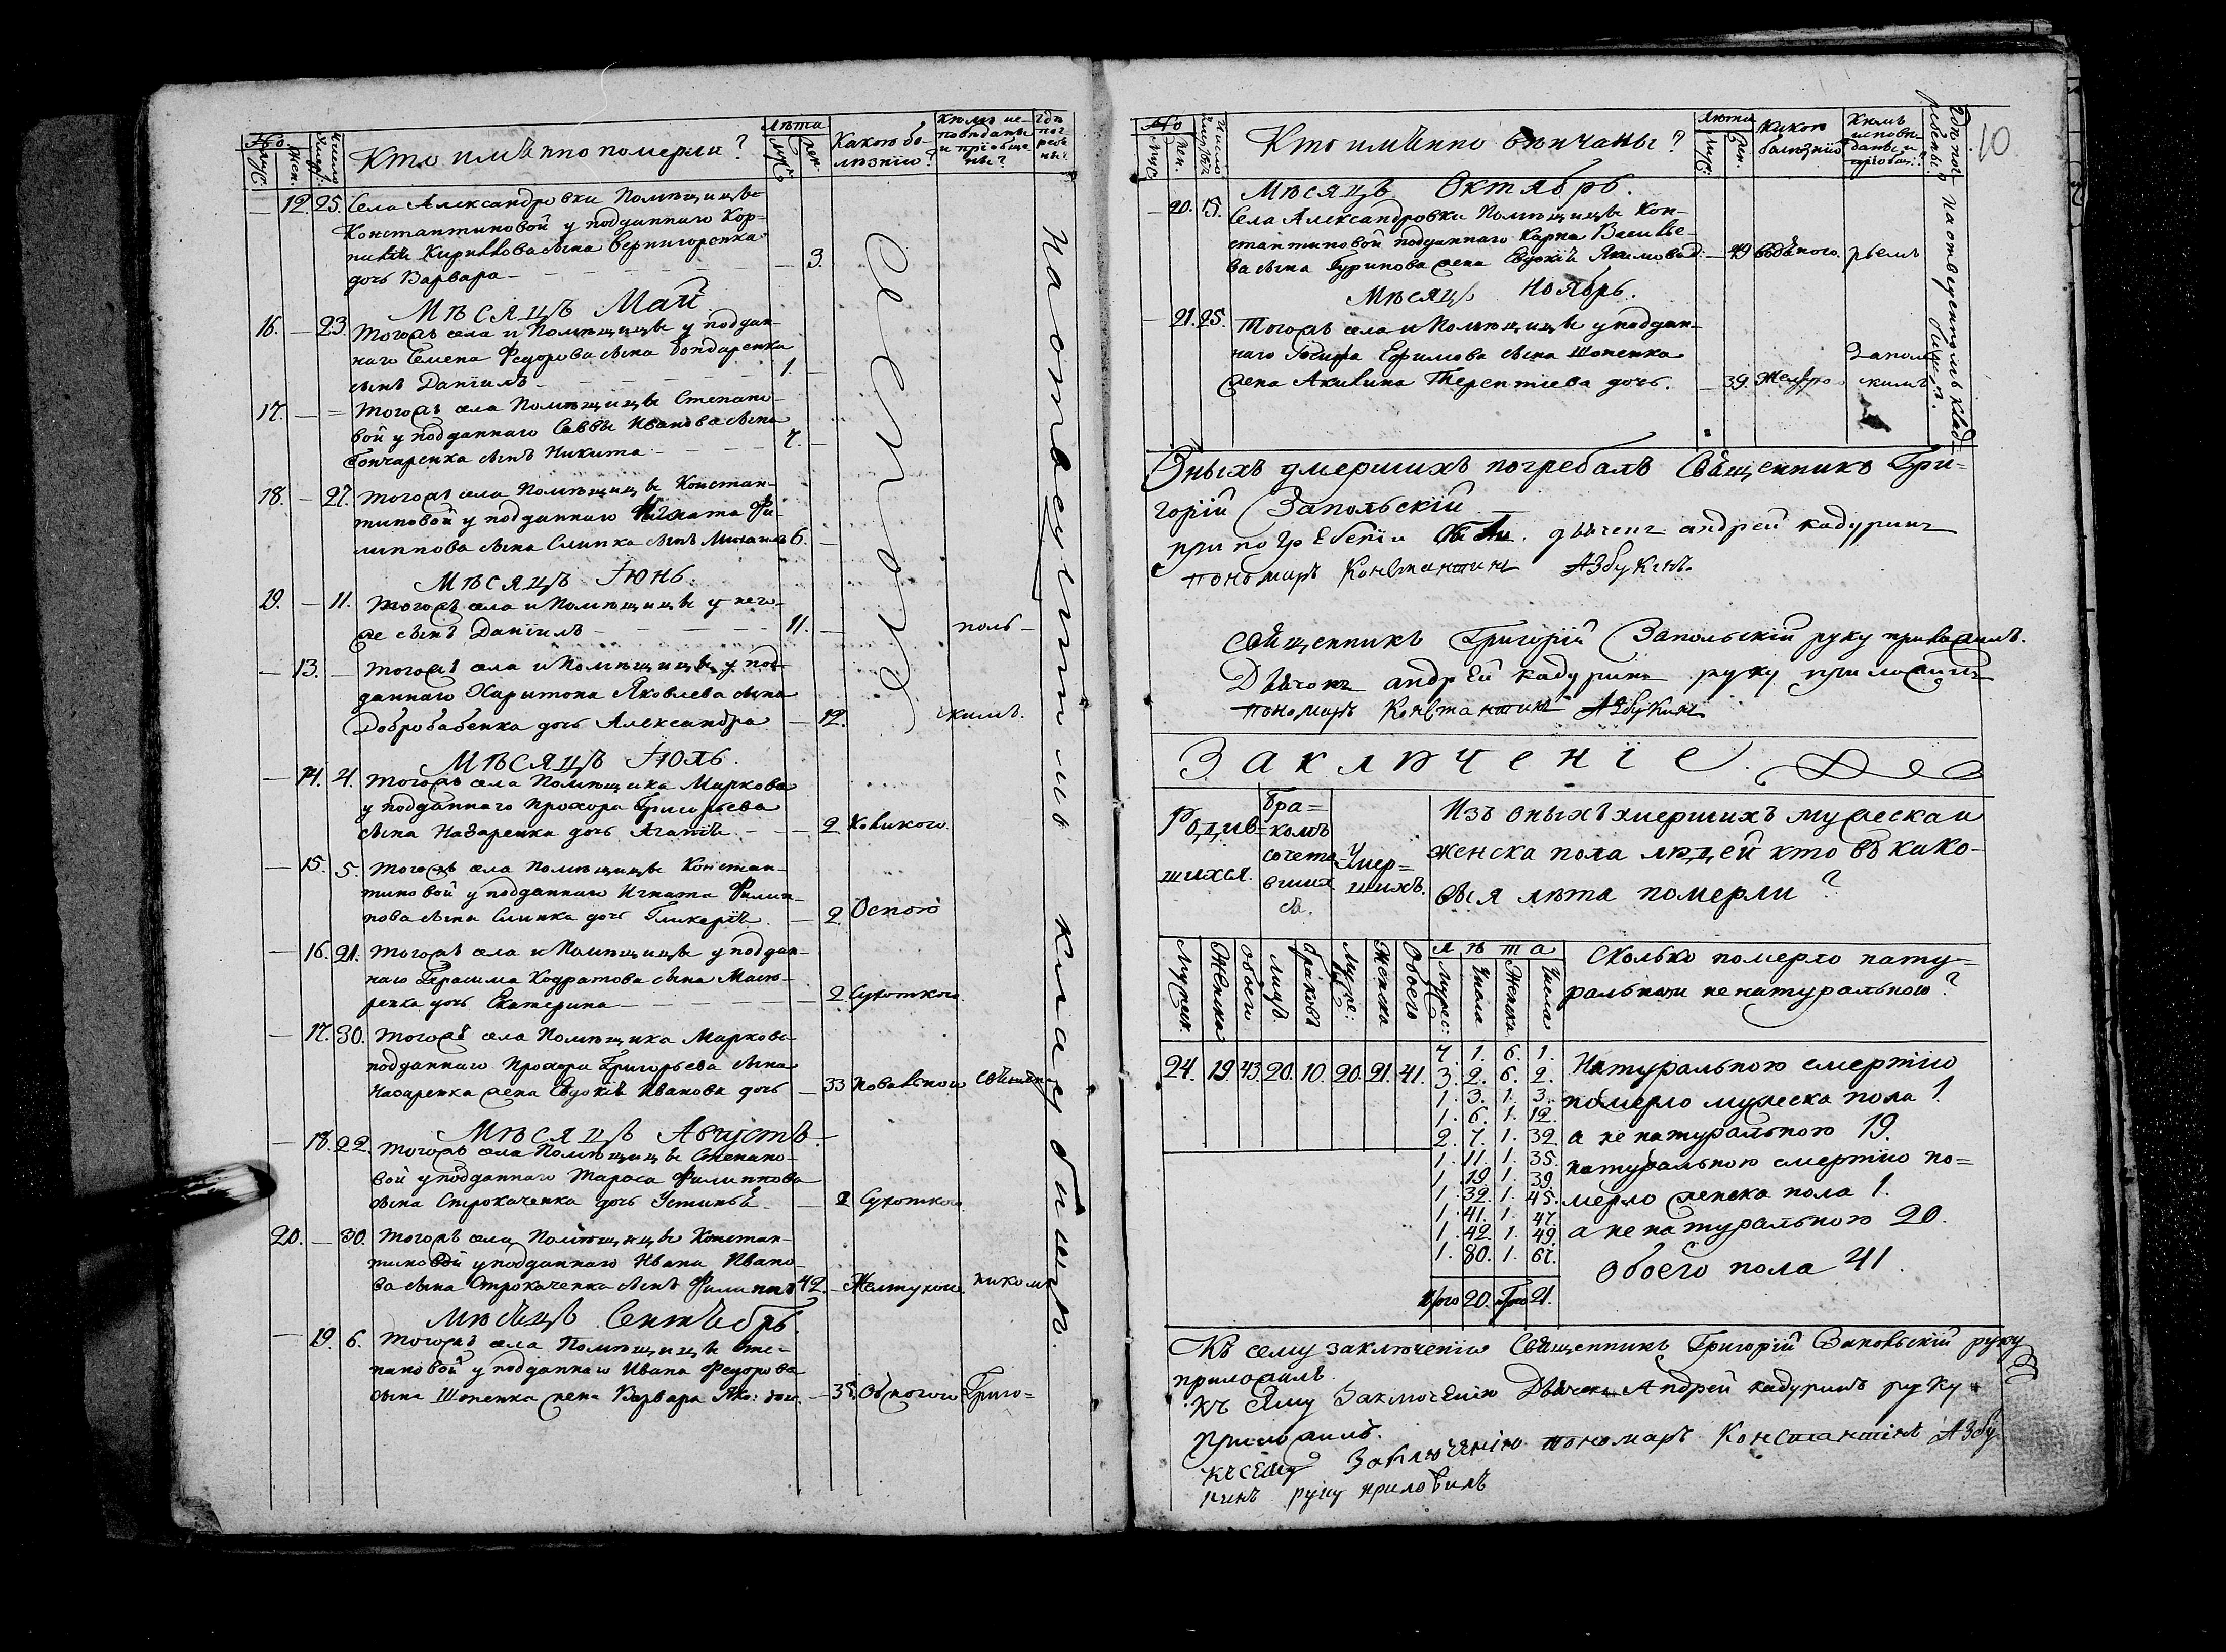 №
муж.
жен.
число умер:
Кто имѣнно померли?
лѣта
муж
жен.
Какою бо-
лѣзнію?
Кѣмъ ис-
повѣданы
и пріобще
ны?
Гдѣ
пог
ребе
ны?
— 12. 25. Села Александровки Помѣщицы
Константиновой у подданнаго Кор-
нилія Кириллова сына Вернигоренка
дочь Варвара — — 3.
Мѣсяцъ Май
16. — 23 Тогожъ села и Помѣщицы у поддан-
наго Семена Федорова сына Бондаренка
сынъ Даніилъ — 1. —
17. — = Тогожъ села Помѣщицы Степано-
вой у подданнаго Саввы Иванова сына
Гончаренка сынъ Никита — 7. —
18. — 27. Тогожъ села Помѣщицы Констан-
тиновой у подданнаго Игната Фи-
липпова сына Слинка сынъ Михаилъ 6. —
Мѣсяцъ Іюнь.
19. — 11. Тогожъ села и Помѣщицы у него-
же сынъ Даніилъ — 11. — поль-
— 13. — Тогожъ села и Помѣщицы у под-
даннаго Харитона Яковлева сына
Добробабенка дочь Александра — 12. скимъ.
Мѣсяцъ Іюль.
— 14. 4. Тогожъ села Помѣщика Маркова
у подданнаго Прохора Григорьева
сына Назаренка дочь Агапія — — 2 Коликою.
— 15. 5. Тогожъ села Помѣщицы Констан-
тиновой у подданнаго Игната Филип-
пова сына Слинка дочь Гликерія — 2. Оспою
— 16. 21. Тогожъ села и Помѣщицы у поддан-
наго Герасима Кодратова сына Маст-
ренка дочь Екатерина — — 2 Сухоткою.
— 17. 30. Тогожъ села Помѣщика Маркова
подданнаго Прохора Григорьева сына
Назаренка жена Евдокія Иванова дочь — 33 повальною Священ-
Мѣсяцъ Августъ.
— 18. 22. Тогожъ села Помѣщицы Степано-
вой у подданнаго Тараса Филиппова
сына Строкаченка дочь Устинья — 2 Сухоткою
20. — 30. Тогожъ села Помѣщицы Констан-
тиновой у подданнаго Ивана Ивано-
ва сына Строкаченка сынъ Филиппъ 42. — Желтухою. никомъ
Мѣсяцъ Сентябрь.
— 19. 6. Тогожъ села Помѣщицы Сте-
пановой у подданнаго Ивана Федорова
сына Шопенка жена Варвара Яко: доч. — 35. Григо=
на отведенномъ кладбищѣ.
№
муж
жен.
Число
Кто имѣнно вѣнчаны?
лѣта
муж:
жен.
Какою
болѣзнію
Кѣмъ
исповѣ-
даны и
пріобщ:
Гдѣ пог-
ребены?
10
Мѣсяцъ Октябрь.
— 20. 15. Села Александровки Помѣщицы Кон-
стантиновой подданнаго Карпа Василье-
ва сына Гуринова жена Евдокія Якимова д: — 49 водяною. ріемъ
Мѣсяцъ Ноябрь.
— 21. 25. Тогожъ села и Помѣщицы у поддан-
наго Іосифа Ефимова сына Шопенка
жена Акилина Терентіева дочь. — 39. Заполь
скимъ
на отведенномъ клад-
бищѣ.
Оныхъ умершихъ погребалъ Священникъ Гри-
горій Запольскій
при погребеніи были. дьячекъ андрей кадуринъ
пономарь Константинъ Азбукинъ.
священникъ Григорій Запольскій руку приложилъ.
Дьячокъ андрей кадуринъ руку приложилъ
пономарь Константинъ Азбукинъ
Заключеніе.
Родив-
шихся.
Бра=
комъ
сочета
вших
ся.
Умер=
шихъ.
Изъ оныхъ умершихъ мужеска и
женска пола людей кто въ како-
выя лѣта померли?
Мужеск.
Женска
Обоего
лицъ.
браковъ
Муже:
Женска
Обоего
лѣта
Мужес:
Числа
Женска
Числа
Сколько померло нату-
ральною и ненатуральною?
24. 19. 43. 20. 10. 20. 21. 41.
7. 1. 6. 1.
3. 2. 6. 2.
1. 3. 1. 3.
1. 6. 1. 12.
2. 7. 1. 32.
1. 11. 1. 35.
1. 19. 1. 39.
1. 32. 1. 45.
1. 41. 1. 47.
1. 42. 1. 49.
1. 80. 1. 67.
Итого 20. Итого 21.
Натуральною смертію
померло мужеска пола 1.
а ненатуральною 19.
натуральною смертію по=
мерло женска пола 1.
а ненатуральною 20.
Обоего пола 41.
Къ сему заключенію Священникъ Григорій Запольскій руку
приложилъ.
Къ сему Заключенію Дьячекъ Андрей кадуринъ руку
приложилъ.
Къ сему Заключенію пономарь Константінъ Азбу
кинъ руку приложилъ